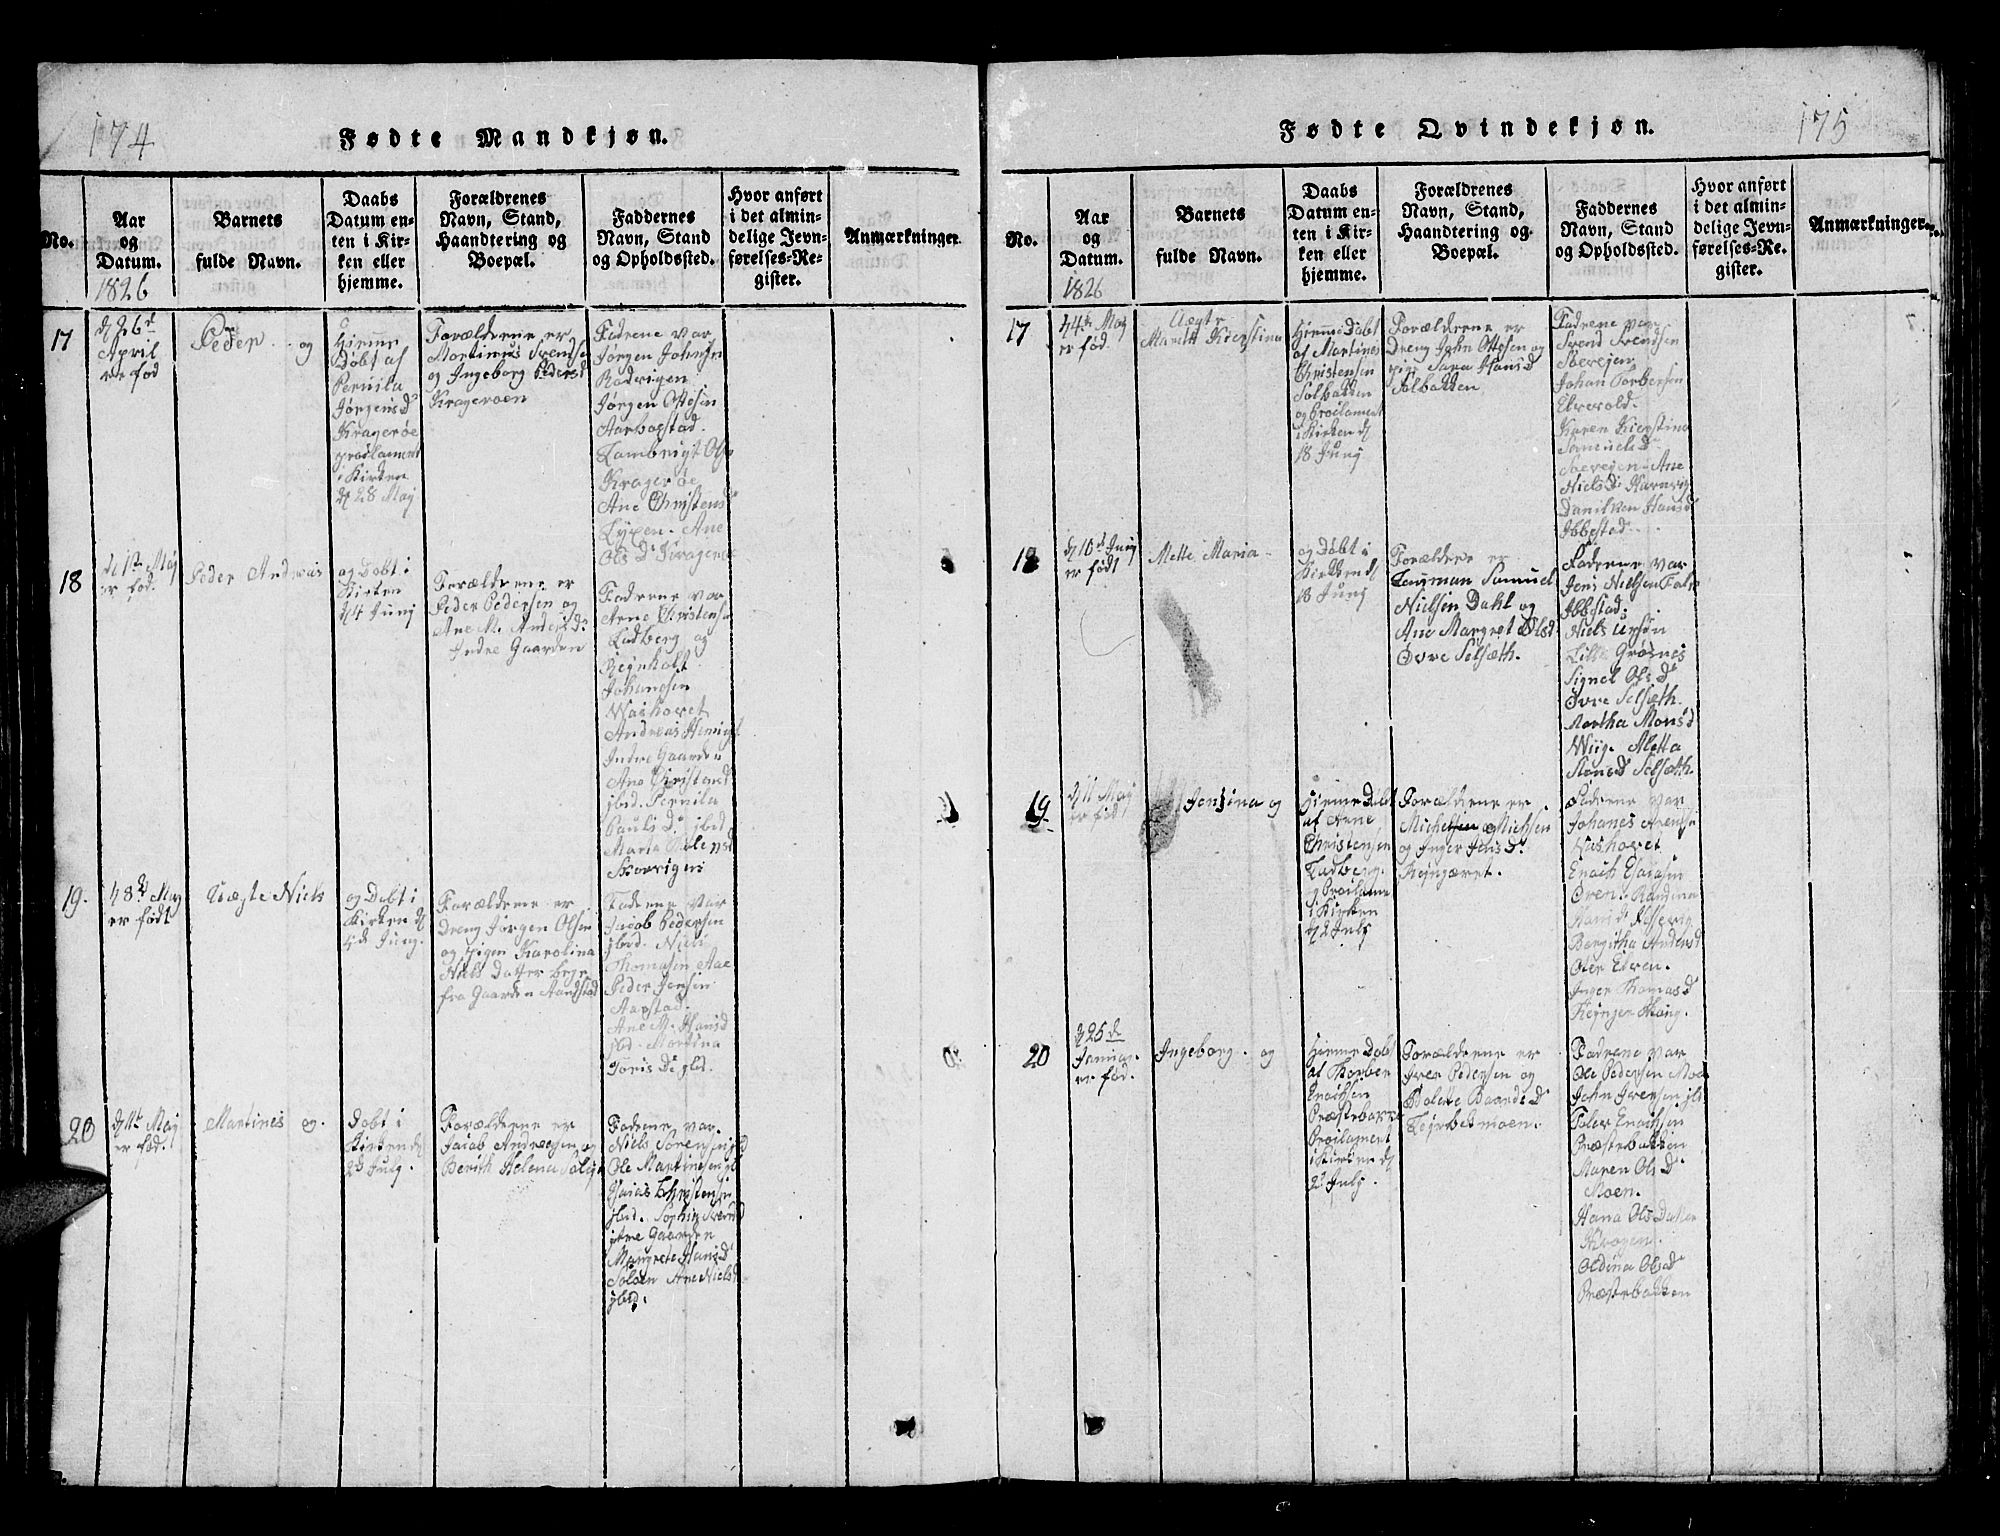 174
Fødte Mandkjøn.
No.
Aar
og
Datum.
1826
Barnets
fulde Navn.
Daabs
Datum en-
ten i Kir-
ken eller
hjemme.
Forældrenes
Navn, Stand,
Haandtering og
Boepæl.
Faddernes
Navn, Stand
og Opholdssted.
Hvor anført
i det almin-
delige Jevn-
førelses-Re-
gister.
Anmærkninger.
17
d 26d
April
er fød
Peder og
Hieme
Døbt af
Pernila
Jørgensd
Kragerøe
proclament
i Kirken
d 28 Maj
Forældrene er
Martines Svends
og Ingeborg Pedersd
Kragerøen
Fadrene var
Jørgen Johnsen
Rødvigen
Jørgen Ottesen
Lambrigt Ols
Kragerøe
Ane Christensd
Ane
Ols D
18
d 1ste Maj
er fød.
Peder Andreas
og Døbt i
Kirken
d 4 Junj
Forældrene er
Peder Pedersen og
Ane M. Andersd
Indre Gaarden
Fadrene var
Arne Christens
Ladberg og
Johansen
Andreas
Indre Gaarden
Ane Christensd
jbid. Pernila
Pauls D. jbid
Maria
19.
d 8d Maj
er født
Uægte Niels
og Døbt i
Kirken d
4d Junj.
Forældrene er
Dreng Jørgen Olsen
og pigen Karolina
Niels Datter begge
fra Gaarden Aandstad
Fadrene var
Jacob Pedersen
jbid. Niels
Thomasen Aae
Peder Jensen
Ane M. Hansd
jbid. Martina
20
d 11te Maj
er fød.
Martines og.
Døbt i
Kirken d
2d July.
Forældrene er
Jacob Andreasen og
Berith Helena
Fadrene var.
Niels Sørensen jbd
Ole Martinesen jb
Esaias Christensen
jbid. Sophia Svendsd
ytre Gaarden
Margrete Hansd
Ane Nielsd
jbid.
175
Fødte Qvindekjøn.
No.
Aar
og
Datum.
1826
Barnets
fulde Navn.
Daabs
Datum en-
ten i Kir-
ken eller
hjemme.
Forældrenes
Navn, Stand,
Haandtering og
Boepæl.
Faddernes
Navn, Stand
og Opholdssted.
Hvor anført
i det almin-
delige Jevn-
førelses-Re-
gister.
Anmærkninger.
17
d 4de Maj
er fød.
Uægte
Mareth Kierstina
Hieme Døbt
af Martines
Christensen
Solbakken
og proclament
i Kirken d
18 Junj
Forældrene er
Dreng John Ottesen og
pige Sara Hansd
Solbakken
Fadrene var
Svend Svendsen
Johan Torbersen
Elvevold.
Karen Kierstina
Samuelsd
Ane
Niels D. Hamvig
Daniken Hansd
Ibbestad.
18
d 10d Junj
er født
Mette Maria
og Døbt i
Kirken d
18 Junj
Forældrene er
Samuel
Nielsen Dahl og
Ane Margret Olsd
Øvre Selsæth.
Fadrene var
Jens Nielsen
Ibbestad.
Niels
Lille Grøsnes
Signel Ols D
Øvre Selsæth.
Martha Monsd
Wiig. Aletta
Monsd Selsæth.
19
d 11 Maj
er født
Jensina og
Hieme Døbt
af Arne
Christensen
Ladberg.
og proclame
i Kirken
d 2 July
Forældrene er
Michel Michsen
og Inger Jens D.
Fadrene var
Johanes Arense
Enoch Esaiasen
Hans D
Bergitha Andersd
Elven.
Inger Thomasd
20
d 25de
Januar
er fød.
Ingeborg. og
Hieme Døbt
af Thorber
Enochsen
Præstebakke
Proclament
i Kirken d
2d July.
Forældrene er
Iver Pedersen og
Bolette Baards D
Fadrene var
Ole Pedersen Moe
John Iversen jb
Peter Enochsen
Præstebakken
Maren Ols D
Moen.
Hana Ols Datter
Krogen.
Oldina Olsd
Præstebakken